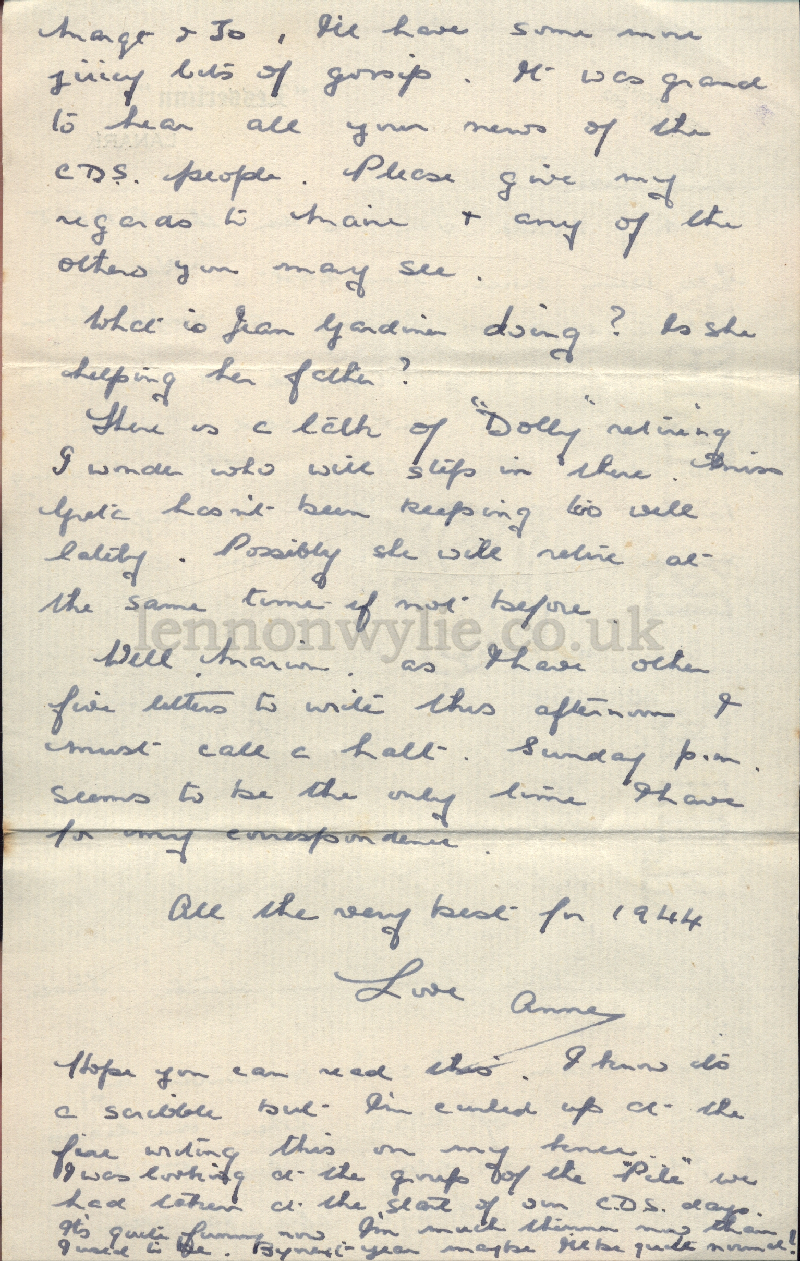 Marge & Jo, I'll have some more
juicy bits of gossip. It was grand
to hear all your news of the
C.D.S. people. Please give my
regards to Maire & any of the
others you may see.
What is Jean Gardiner doing? Is she
helping her father?
There is a talk of "Dolly" retiring
I wonder who will step in there. Miss
Greta hasn't been keeping too well
lately. Possibly she will retire at
the same time if not before.
lennonwylie.co.uk
Well, Marion, as I have other
five letters to write this afternoon I
must call a halt. Sunday p.m.
seems to be the only time I have
for my correspondence.
All the very best for 1944
Love Anne
Hope you can read this. I know its
a scribble but I'm curled up at the
fire writing this on my knee.
I was looking at the group of the "Pile" we
had taken at the start of our C.D.S. days.
It's quite funny now I'm much thinner now than
I used to be. By next year maybe I'll be quite normal!